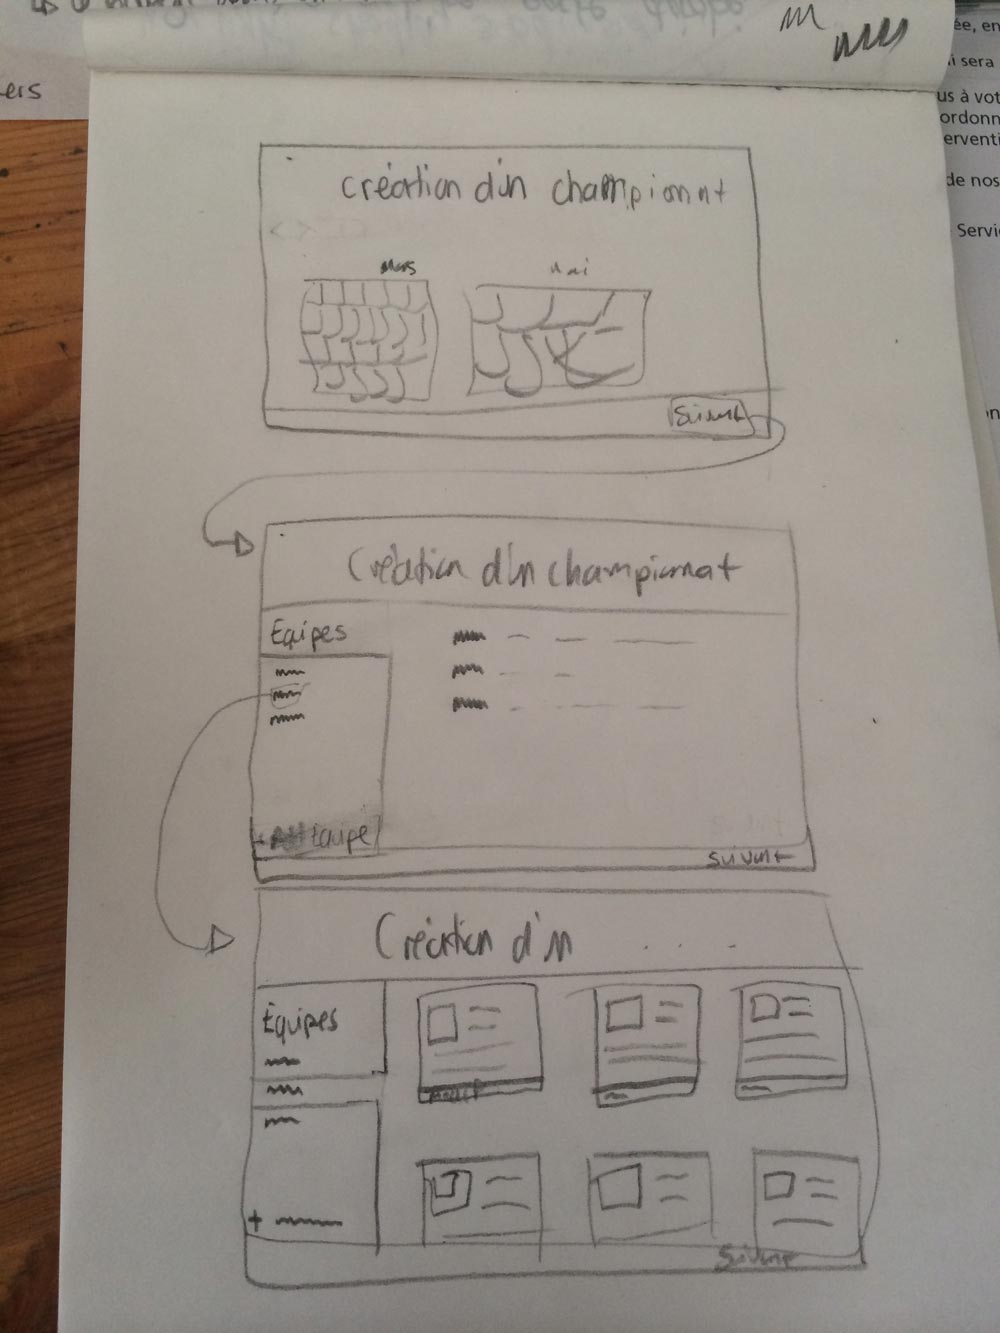 ers
ée, en
i sera
us à vot
ordonn
erventi
de nos
Servi
création d'un championnat
Mars
Mai
Suivant
Création d'un championnat
Equipes
Equipe
suivant
Création d'un . . .
Équipes
+
Suivant